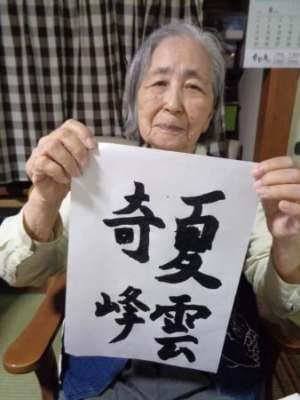 夏雲
奇峰